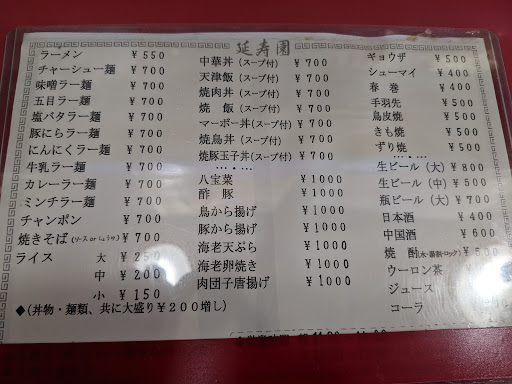 延寿園
ラーメン ¥550
チャーシュー麺 ¥700
味噌ラー麺 ¥700
五目ラー麺 ¥700
塩バタラー麺 ¥700
豚にらラー麺 ¥700
にんにくラー麺 ¥700
牛乳ラー麺 ¥700
カレーラー麺 ¥700
ミンチラー麺 ¥700
チャンポン ¥700
焼きそば(ソースorしょうゆ) ¥700
ライス 大 ¥250
中 ¥200
小 ¥150
◆(丼物・麺類、共に大盛り¥200増し)
中華丼(スープ付) ¥700
天津飯(スープ付) ¥700
焼肉丼(スープ付) ¥700
焼飯(スープ付) ¥700
マーボー丼(スープ付) ¥700
焼鳥丼(スープ付) ¥700
焼豚玉子丼(スープ付) ¥700
八宝菜 ¥1000
酢豚 ¥1000
鳥から揚げ ¥1000
豚から揚げ ¥1000
海老天ぷら ¥1000
海老卵焼き ¥1000
肉団子唐揚げ ¥1000
ギョウザ ¥500
シューマイ ¥400
春巻 ¥400
手羽先 ¥500
鳥皮焼 ¥500
きも焼 ¥500
ずり焼 ¥500
生ビール(大) ¥800
生ビール(中) ¥500
瓶ビール(大) ¥700
日本酒 ¥400
中国酒 ¥600
焼酎(水・湯割・ロック)
ウーロン茶
ジュース
コーラ